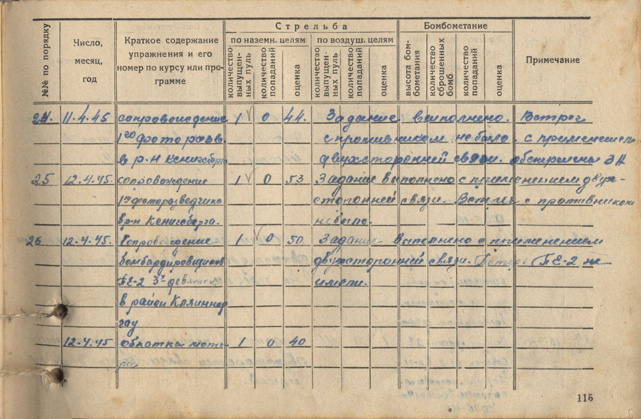 №№ по порядку
Число, месяц, год
Краткое содержание упражнения и его номер по курсу или программе
Стрельба
по наземн. целям
по воздуш. целям
количество выпущенных пуль
количество попаданий
оценка
количество выпущенных пуль
количество попаданий
оценка
Бомбометание
высота бомбометания
количество сброшенных бомб
количество попаданий
оценка
Примечание
24. 11.4.45 сопровождение 1 0 44. Задание выполнено. Встреч
1го фоторазв. с противником не было. с применением
в р-н Кенигсберг двухсторонней связи. обстреляны ЗА
25 12.4.45 сопровождение 1 0 53 Задание выполнено с применением двух-
1 фоторазведчика сторонней связи. Встреч с противником
в р-н Кенигсберга. не было.
26 12.4.45. Сопровождение 1 0 50 Задание выполнено с применением
бомбардировщиков двухсторонней связи. ПЕ-2 не
ПЕ-2 имели.
в район
12.4.45 облетка мото- 1 0 40
ра
115